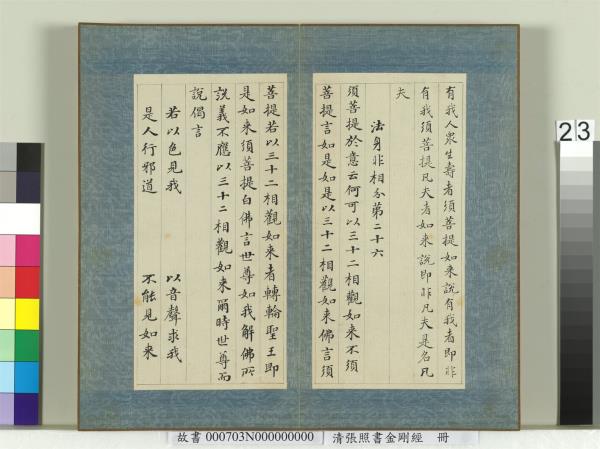 有我人衆生壽者須菩提如來說有我者即非
有我須菩提凡夫者如來說即非凡夫是名凡
夫
法身非相分第二十六
須菩提於意云何可以三十二相觀如來不須
菩提言如是如是以三十二相觀如來佛言須
菩提若以三十二相觀如來者轉輪聖王即
是如來須菩提白佛言世尊如我解佛所
說義不應以三十二相觀如來爾時世尊而
說偈言
若以色見我 以音聲求我
是人行邪道 不能見如來
23
故書 000703N000000000 清張照書金剛經 冊